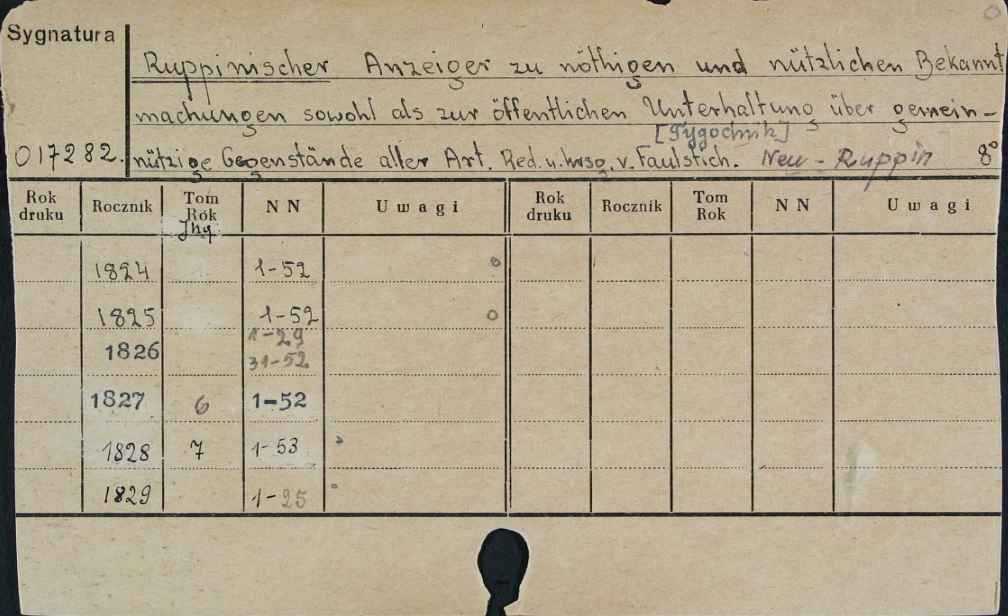 Sygnatura
Ruppinischer Anzeiger zu nöthigen und nützlichen Bekannt
machungen sowohl als zur öffentlichen Unterhaltung über gemein-
[Tygodnik]
017282. nützige Gegenstände aller Art. Red. u. hrsg. v. Faulstich. Neu-Ruppin 8°
Rok druku Rocznik Tom Rok NN Uwagi Rok druku Rocznik Tom Rok NN Uwagi
Jhg.
1824 1-52
1825 1-52
1826 1-29
31-52
1827 6 1-52
1828 7 1-53
1829 1-25